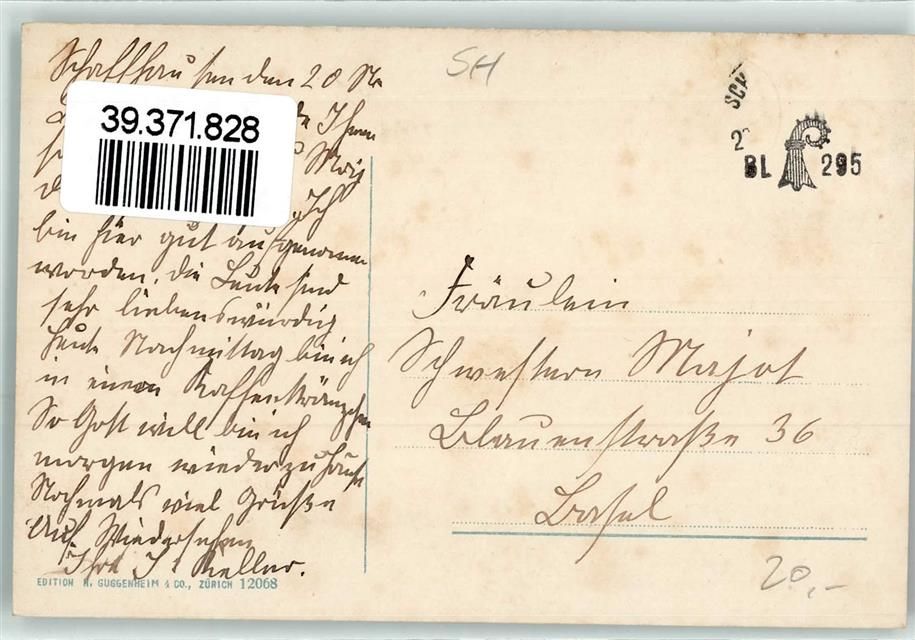 Schaffhausen den 20
39.371.828
Ihnen
Ich
bin hier gut aufgenommen
worden, die Leute sind
sehr liebenswürdig
Heute Nachmittag bin ich
in einem Kaffeekränzchen
So Gott will bin ich
morgen wieder zuhause
Nochmals viel Grüße
Auf Wiedersehen
Ihre J. Keller.
EDITION H. GUGGENHEIM & CO., ZÜRICH 12068
SH
SCH
2
BL 295
Fräulein
Schwestern Majot
Blauenstraße 36
Basel
20,-